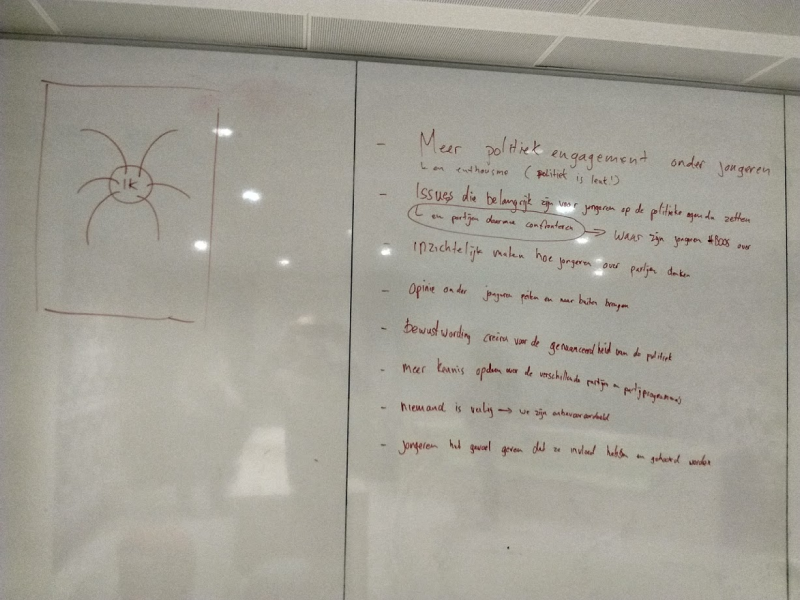 IK
- Meer politiek engagement onder jongeren
L en enthousme (politiek is leuk!)
- Issues die belangrijk zijn voor jongeren op de politieke agenda zetten
L en partijen daarmee confronteren → WAAR zijn jongeren #BOOS over
- inzichtelijk maken hoe jongeren over partijen denken
- Opinie onder jongeren peilen en naar buiten brengen
- bewustwording creëren voor de genuanceerdheid van de politiek
- meer kennis opdoen over de verschillende partijen en partijprogramma's
- niemand is veilig → we zijn onbevooroordeeld
- jongeren het gevoel geven dat ze invloed hebben en gehoord worden